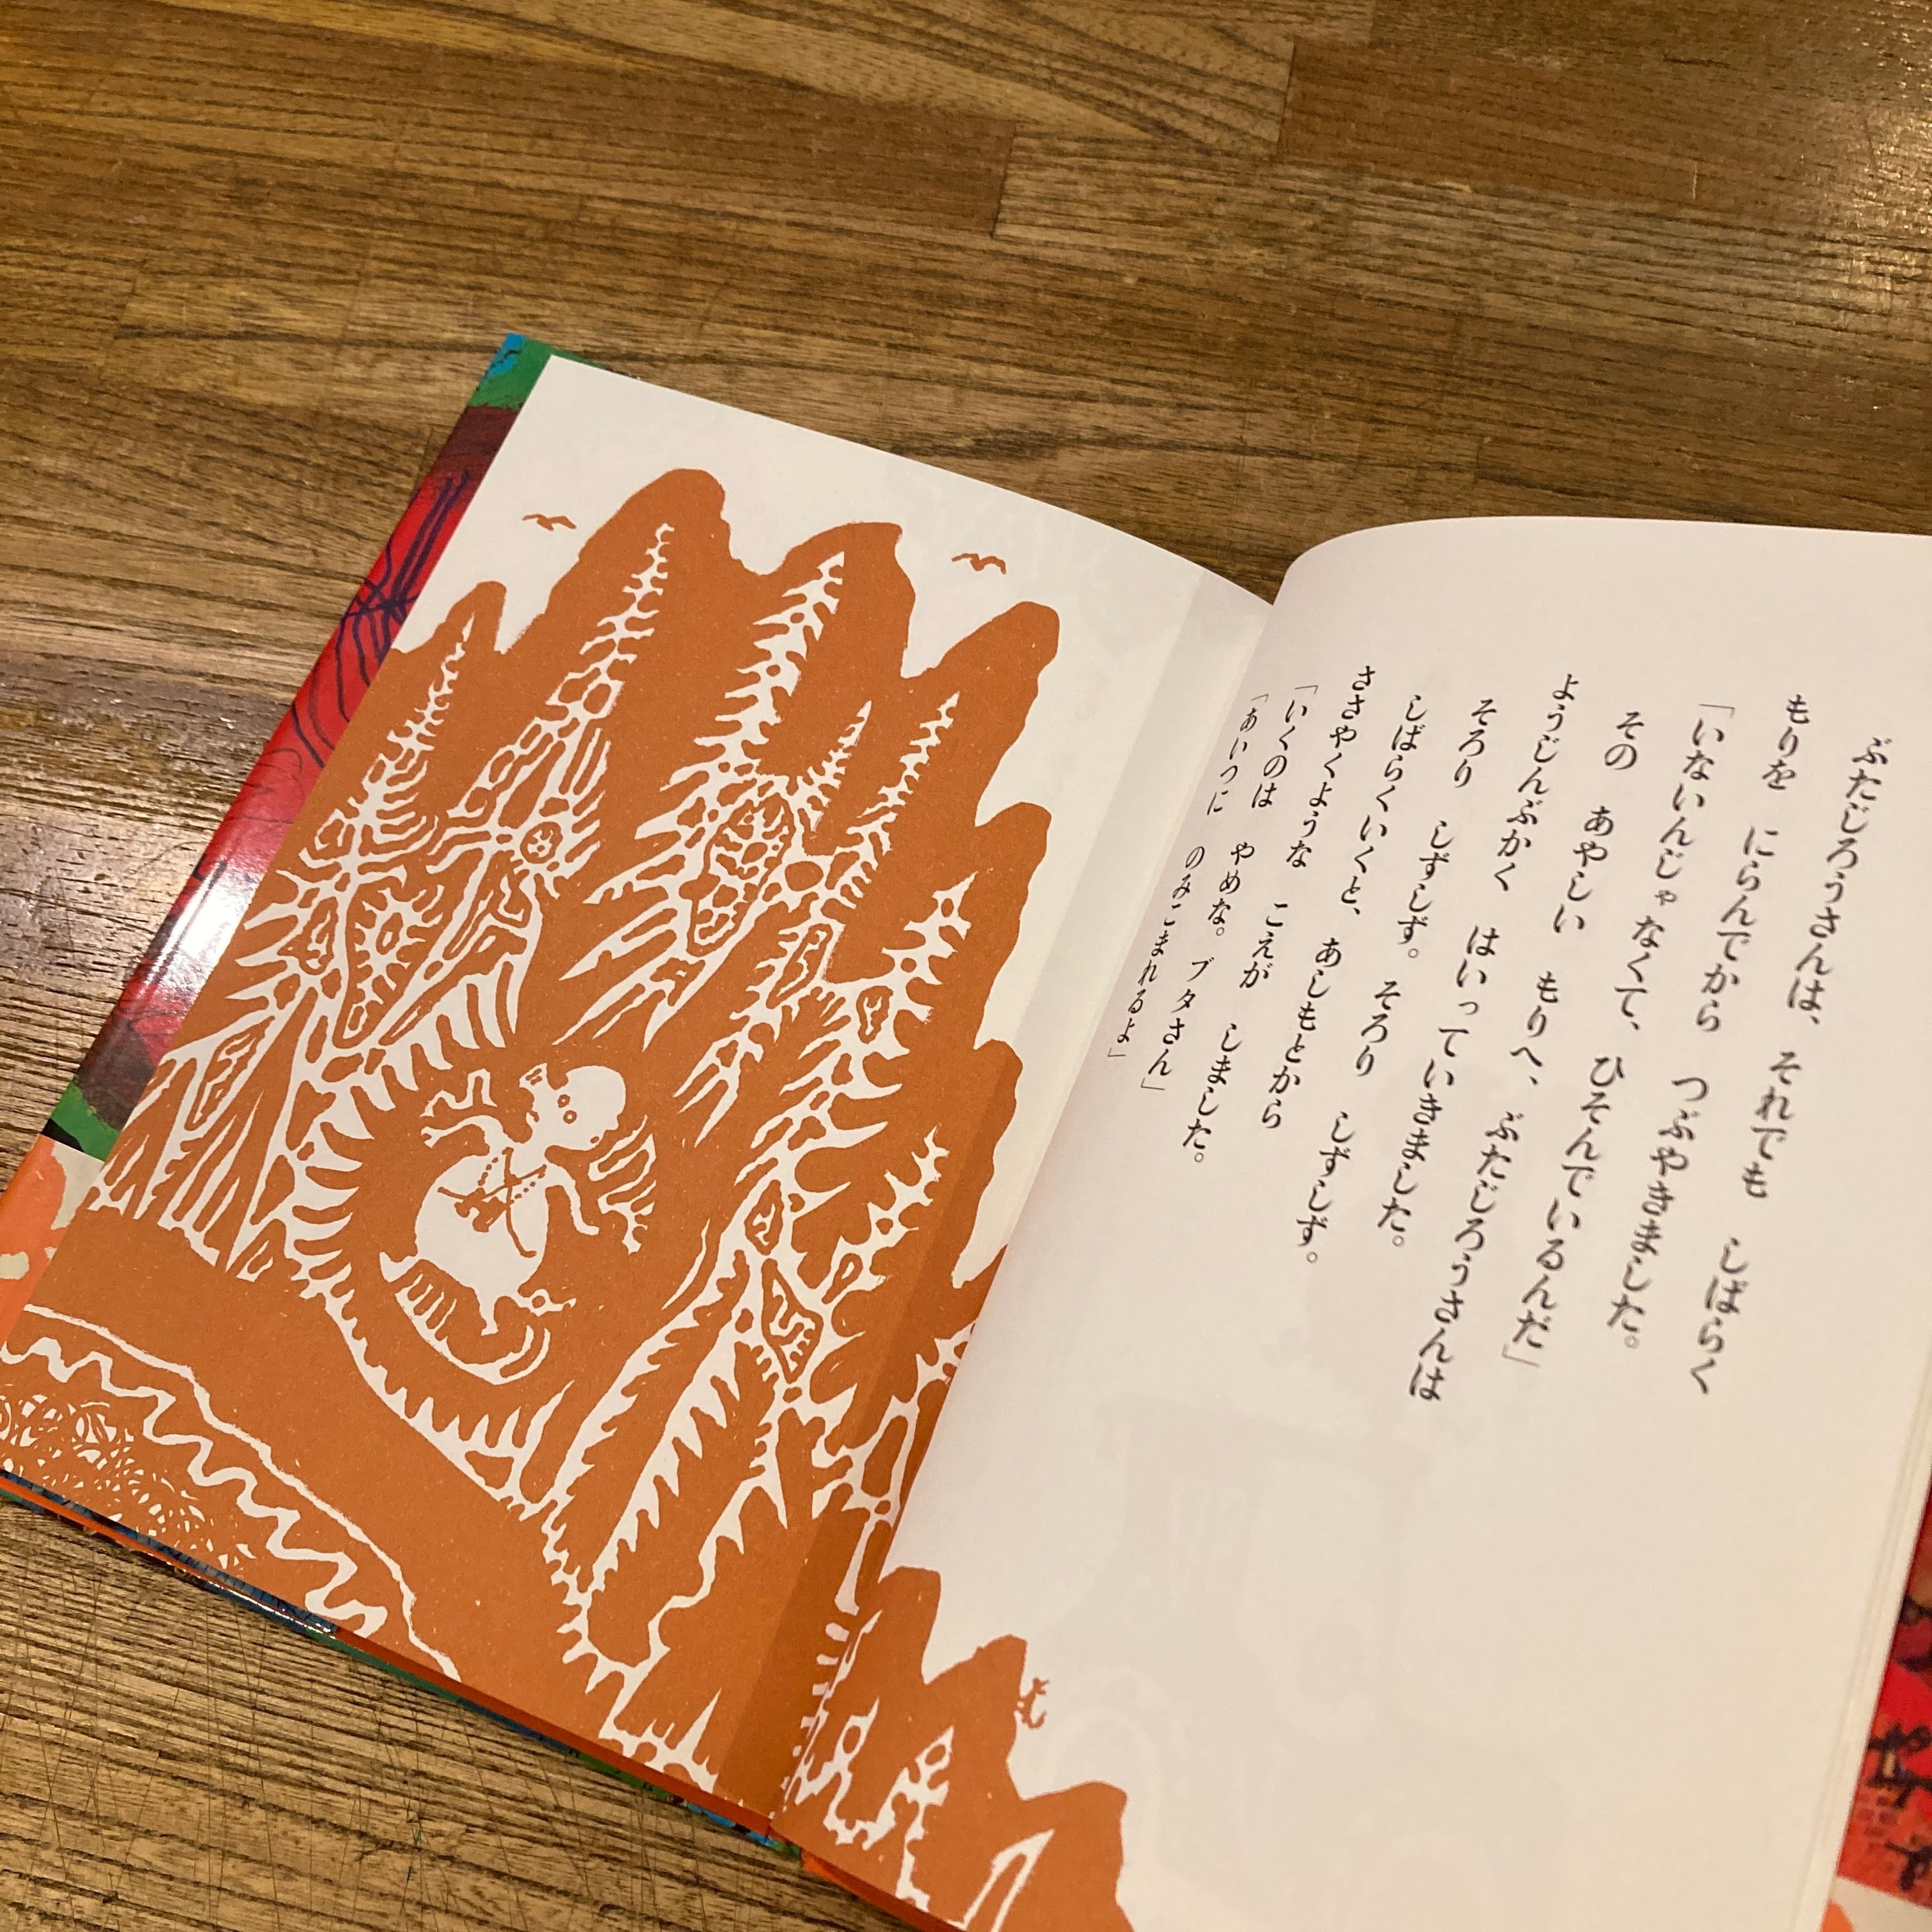 ぶたじろうさんは、それでも しばらく
もりを にらんでから つぶやきました。
「いないんじゃなくて、ひそんでいるんだ」
その あやしい もりへ、ぶたじろうさんは
ようじんぶかく はいっていきました。
そろり しずしず。そろり しずしず。
しばらくいくと、あしもとから
ささやくような こえが しました。
「いくのは やめな。ブタさん」
「あいつに のみこまれるよ」